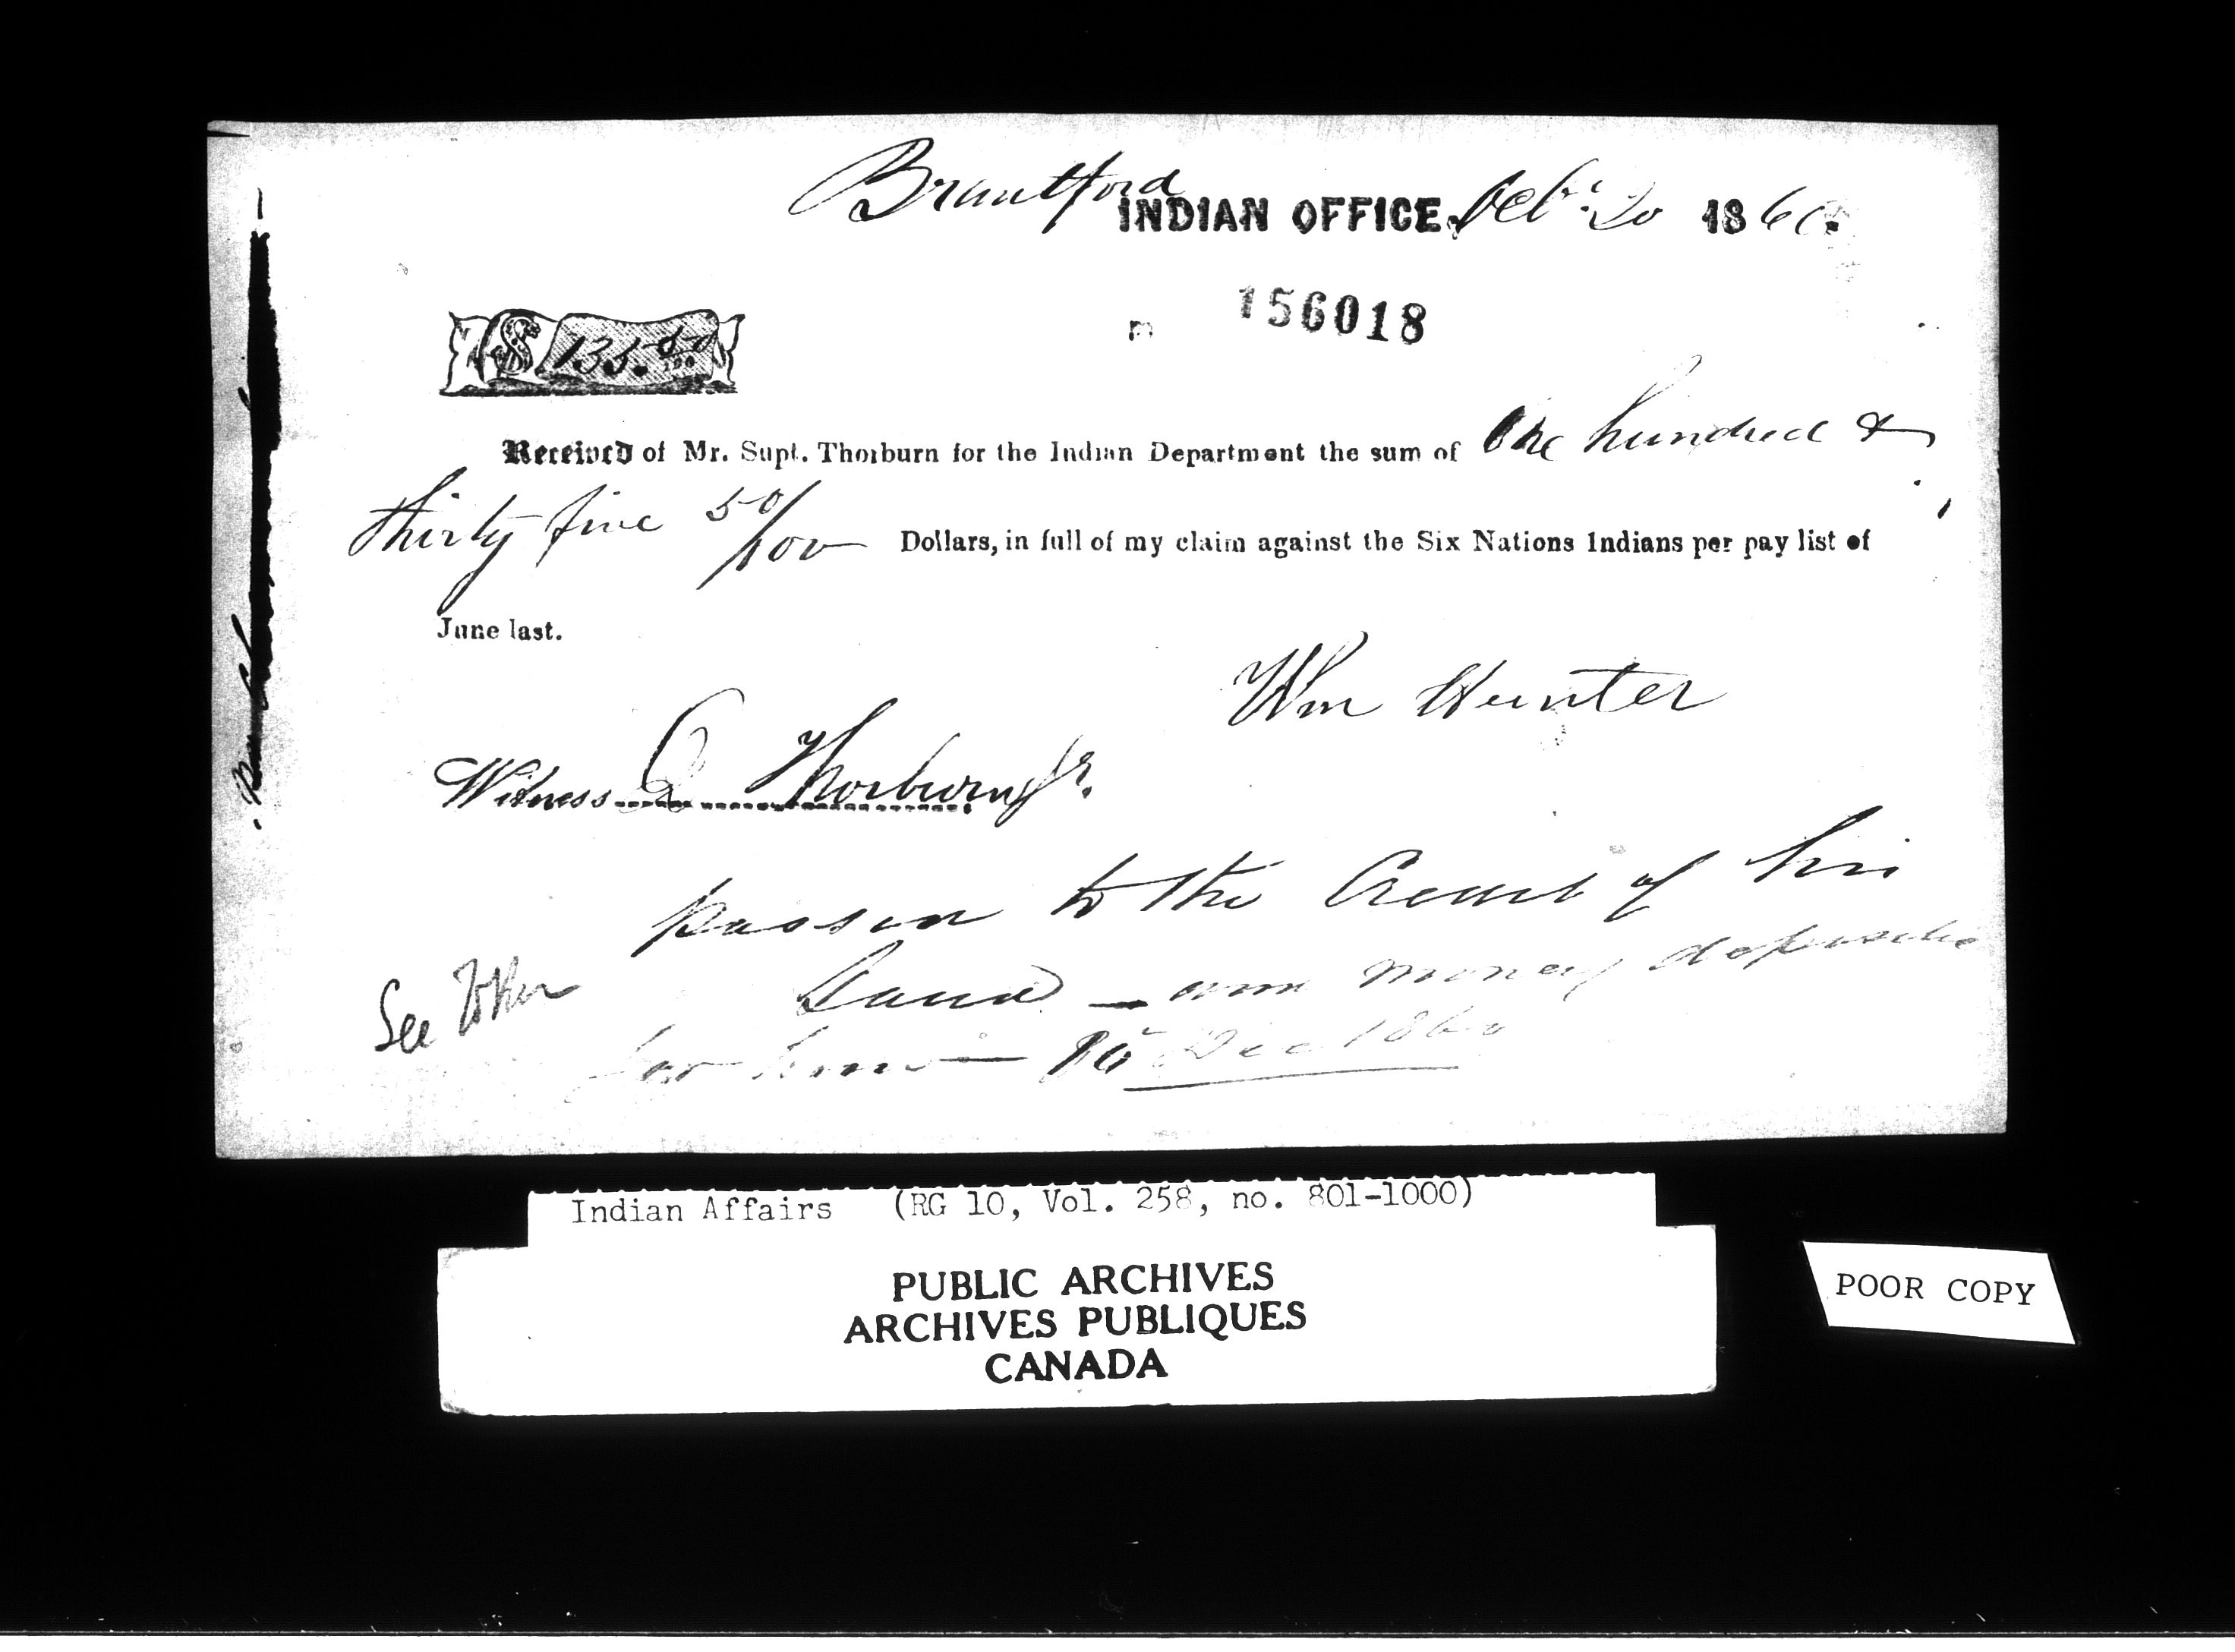 Brantford
INDIAN OFFICE, Octr. 20 1860.
156018
$ 135. 50/100
Received of Mr. Supt. Thorburn for the Indian Department the sum of One hundred &
thirty five 50/100 Dollars, in full of my claim against the Six Nations Indians per pay list of
June last.
Wm Hunter
Witness D Thorburn Jr.
to the Credit of his
Land — money
See
for him — Dec 1860
Indian Affairs (RG 10, Vol. 258, no. 801-1000)
PUBLIC ARCHIVES
ARCHIVES PUBLIQUES
CANADA
POOR COPY